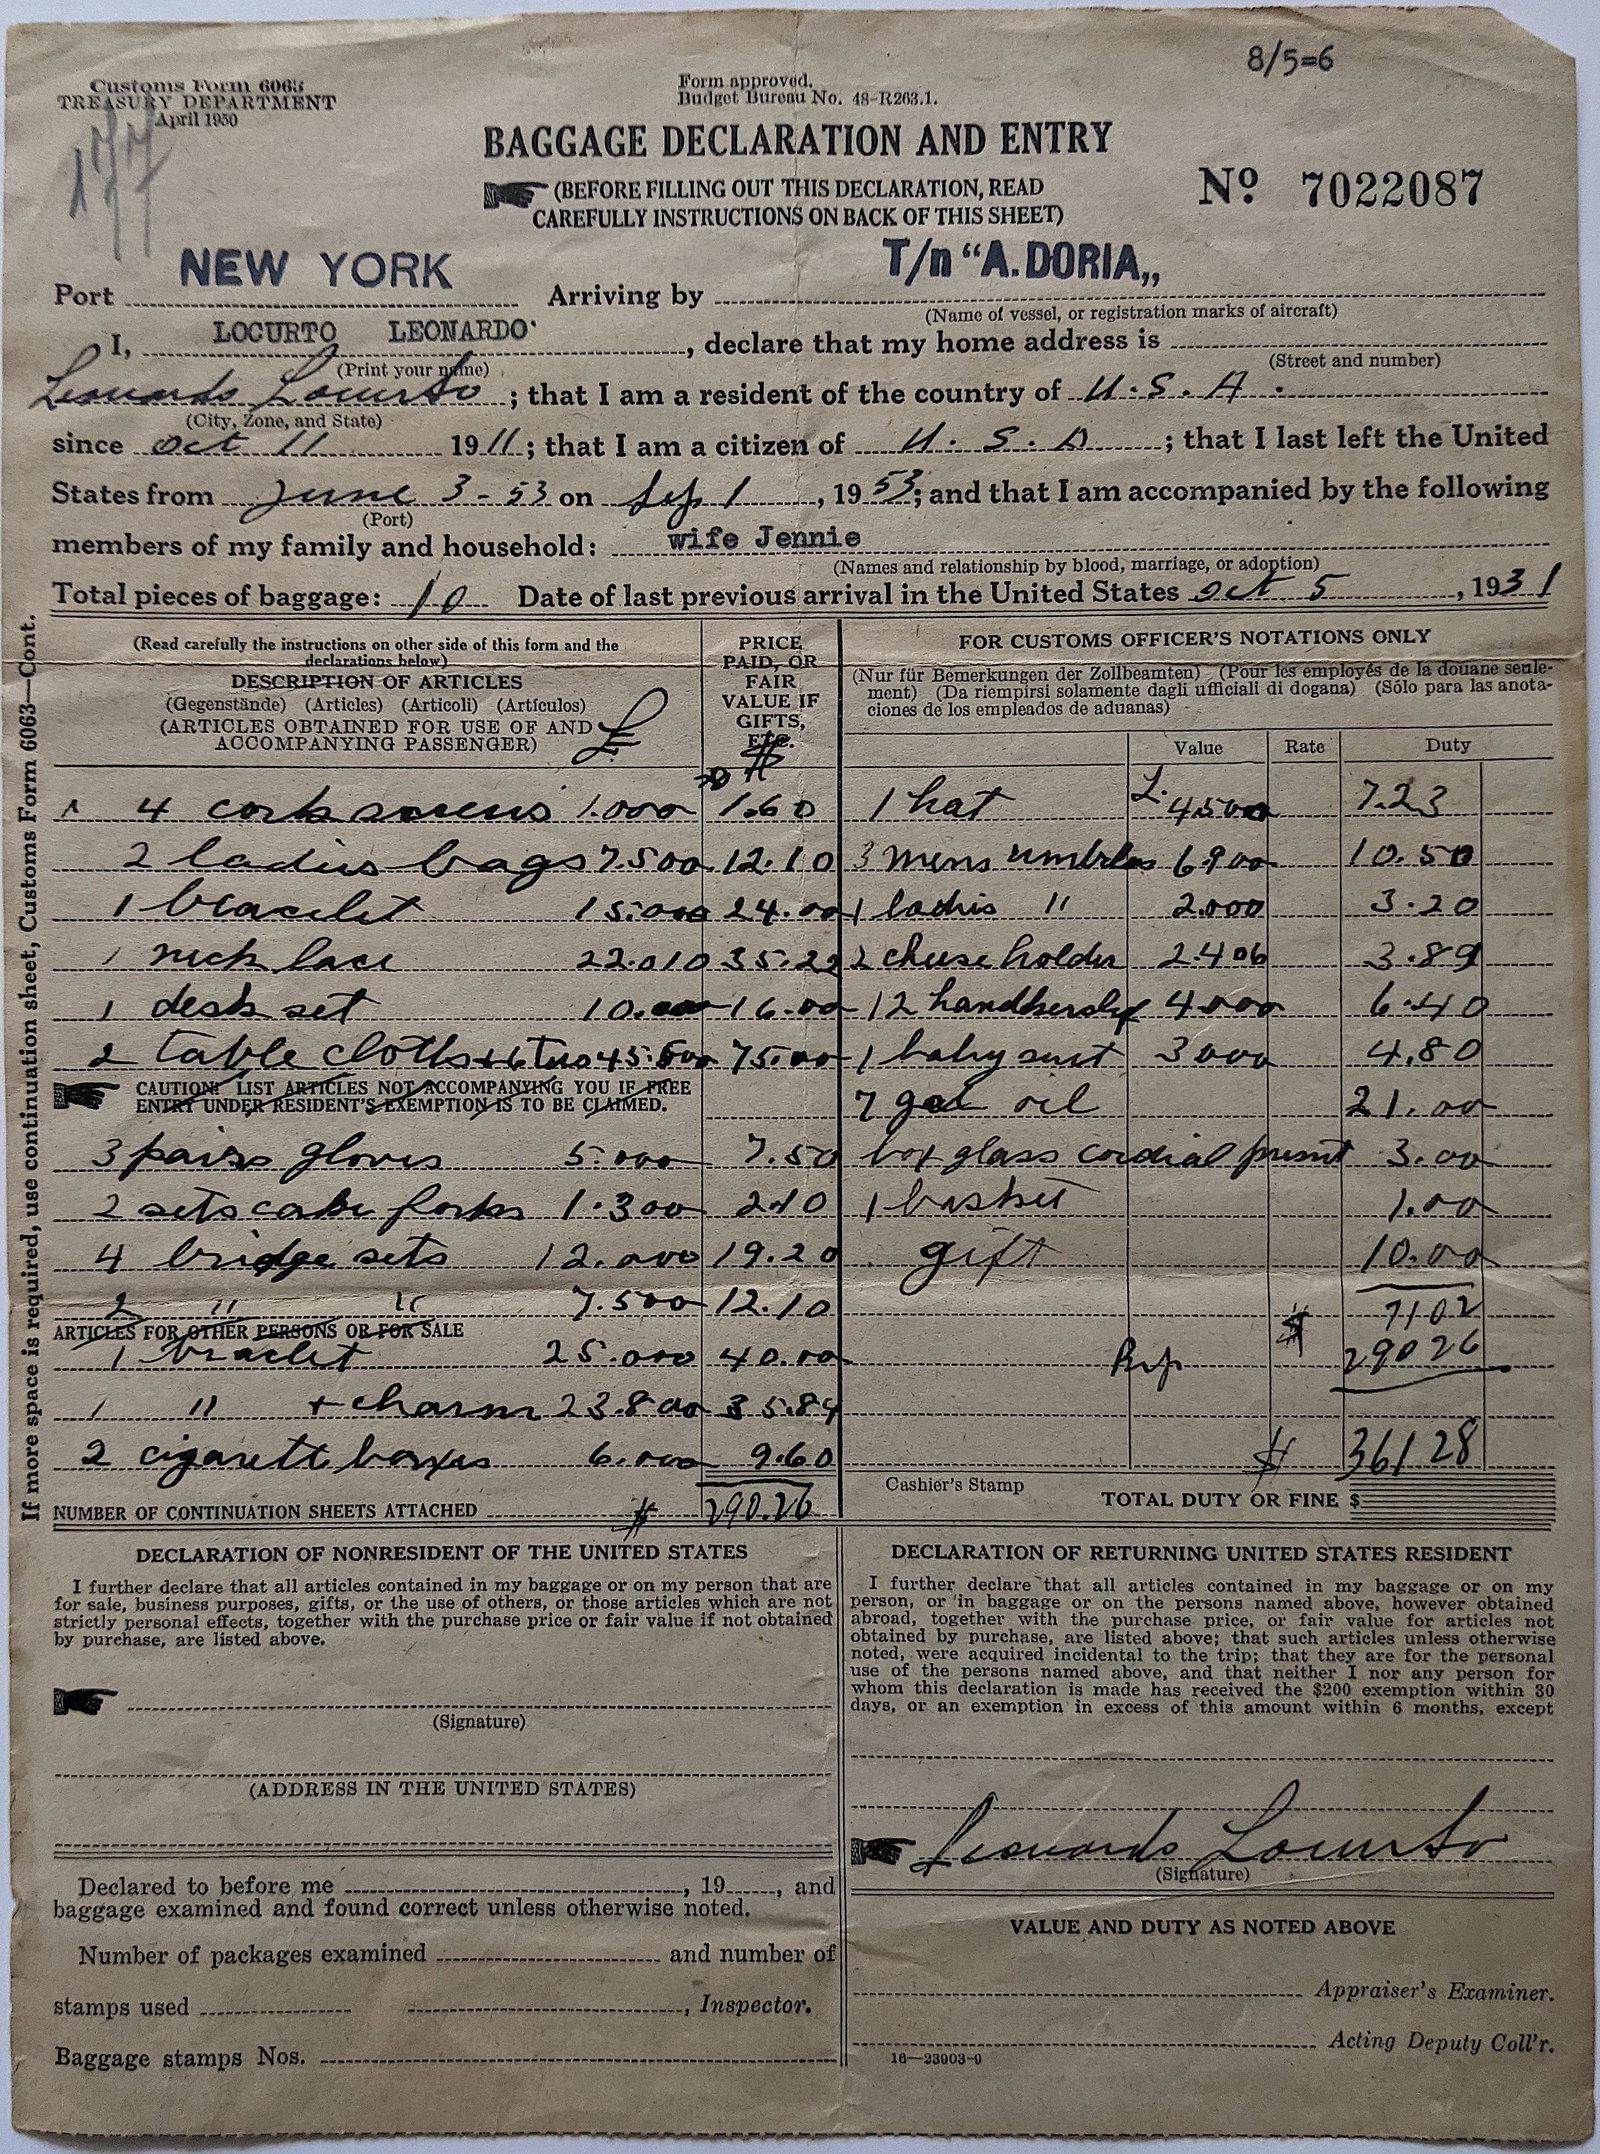 8/5=6
Customs Form 6063
TREASURY DEPARTMENT
April 1950
177
Form approved.
Budget Bureau No. 48-R263.1.
BAGGAGE DECLARATION AND ENTRY
(BEFORE FILLING OUT THIS DECLARATION, READ
CAREFULLY INSTRUCTIONS ON BACK OF THIS SHEET)
Nº 7022087
Port NEW YORK Arriving by T/n “A. DORIA„
(Name of vessel, or registration marks of aircraft)
I, LOCURTO LEONARDO, declare that my home address is
(Print your name) (Street and number)
Leonardo Locurto ; that I am a resident of the country of U. S. A.
(City, Zone, and State)
since oct 11 1911; that I am a citizen of U. S. A ; that I last left the United
States from June 3-53 on Sep 1, 1953; and that I am accompanied by the following
(Port)
members of my family and household: wife Jennie
(Names and relationship by blood, marriage, or adoption)
Total pieces of baggage: 10 Date of last previous arrival in the United States oct 5, 1931
If more space is required, use continuation sheet, Customs Form 6063—Cont.
(Read carefully the instructions on other side of this form and the
declarations below)
DESCRIPTION OF ARTICLES
(Gegenstände) (Articles) (Articoli) (Artículos)
(ARTICLES OBTAINED FOR USE OF AND
ACCOMPANYING PASSENGER)
£
PRICE
PAID, OR
FAIR
VALUE IF
GIFTS,
ETC.
$
4 cork screws 1.000 1.60
2 ladies bags 7.500 12.10
1 bracelet 15.000 24.00
1 neck lace 22.010 35.22
1 desk set 10.000 16.00
2 table cloths 45.500 75.00
CAUTION: LIST ARTICLES NOT ACCOMPANYING YOU IF FREE
ENTRY UNDER RESIDENT'S EXEMPTION IS TO BE CLAIMED.
3 pairs gloves 5.000 7.50
2 sets cake forks 1.300 2.10
4 bridge sets 12.000 19.20
2 " " 7.500 12.10
ARTICLES FOR OTHER PERSONS OR FOR SALE
1 braclet 25.000 40.00
1 " + charm 23.800 35.84
2 cigarett boxes 6.000 9.60
NUMBER OF CONTINUATION SHEETS ATTACHED $ 290.26
FOR CUSTOMS OFFICER'S NOTATIONS ONLY
(Nur für Bemerkungen der Zollbeamten) (Pour les employés de la douane seule-
ment) (Da riempirsi solamente dagli ufficiali di dogana) (Sólo para las anota-
ciones de los empleados de aduanas)
Value Rate Duty
1 hat L. 4500 7.23
3 mens umbrlas 6900 10.50
1 ladis " 2.000 3.20
2 cheese holder 2.406 3.89
12 handkershf 4000 6.40
1 baby suit 3000 4.80
7 gal oil 21.00
box glass cordial present 3.00
1 basket 1.00
gift 10.00
$ 7102
29026
$ 36128
Cashier's Stamp
TOTAL DUTY OR FINE $
DECLARATION OF NONRESIDENT OF THE UNITED STATES
I further declare that all articles contained in my baggage or on my person that are
for sale, business purposes, gifts, or the use of others, or those articles which are not
strictly personal effects, together with the purchase price or fair value if not obtained
by purchase, are listed above.
(Signature)
(ADDRESS IN THE UNITED STATES)
Declared to before me , 19 , and
baggage examined and found correct unless otherwise noted.
Number of packages examined and number of
stamps used , Inspector.
Baggage stamps Nos.
DECLARATION OF RETURNING UNITED STATES RESIDENT
I further declare that all articles contained in my baggage or on my
person, or in baggage or on the persons named above, however obtained
abroad, together with the purchase price, or fair value for articles not
obtained by purchase, are listed above; that such articles unless otherwise
noted, were acquired incidental to the trip; that they are for the personal
use of the persons named above, and that neither I nor any person for
whom this declaration is made has received the $200 exemption within 30
days, or an exemption in excess of this amount within 6 months, except
Leonardo Locurto
(Signature)
VALUE AND DUTY AS NOTED ABOVE
Appraiser's Examiner.
Acting Deputy Coll'r.
16—23903-9